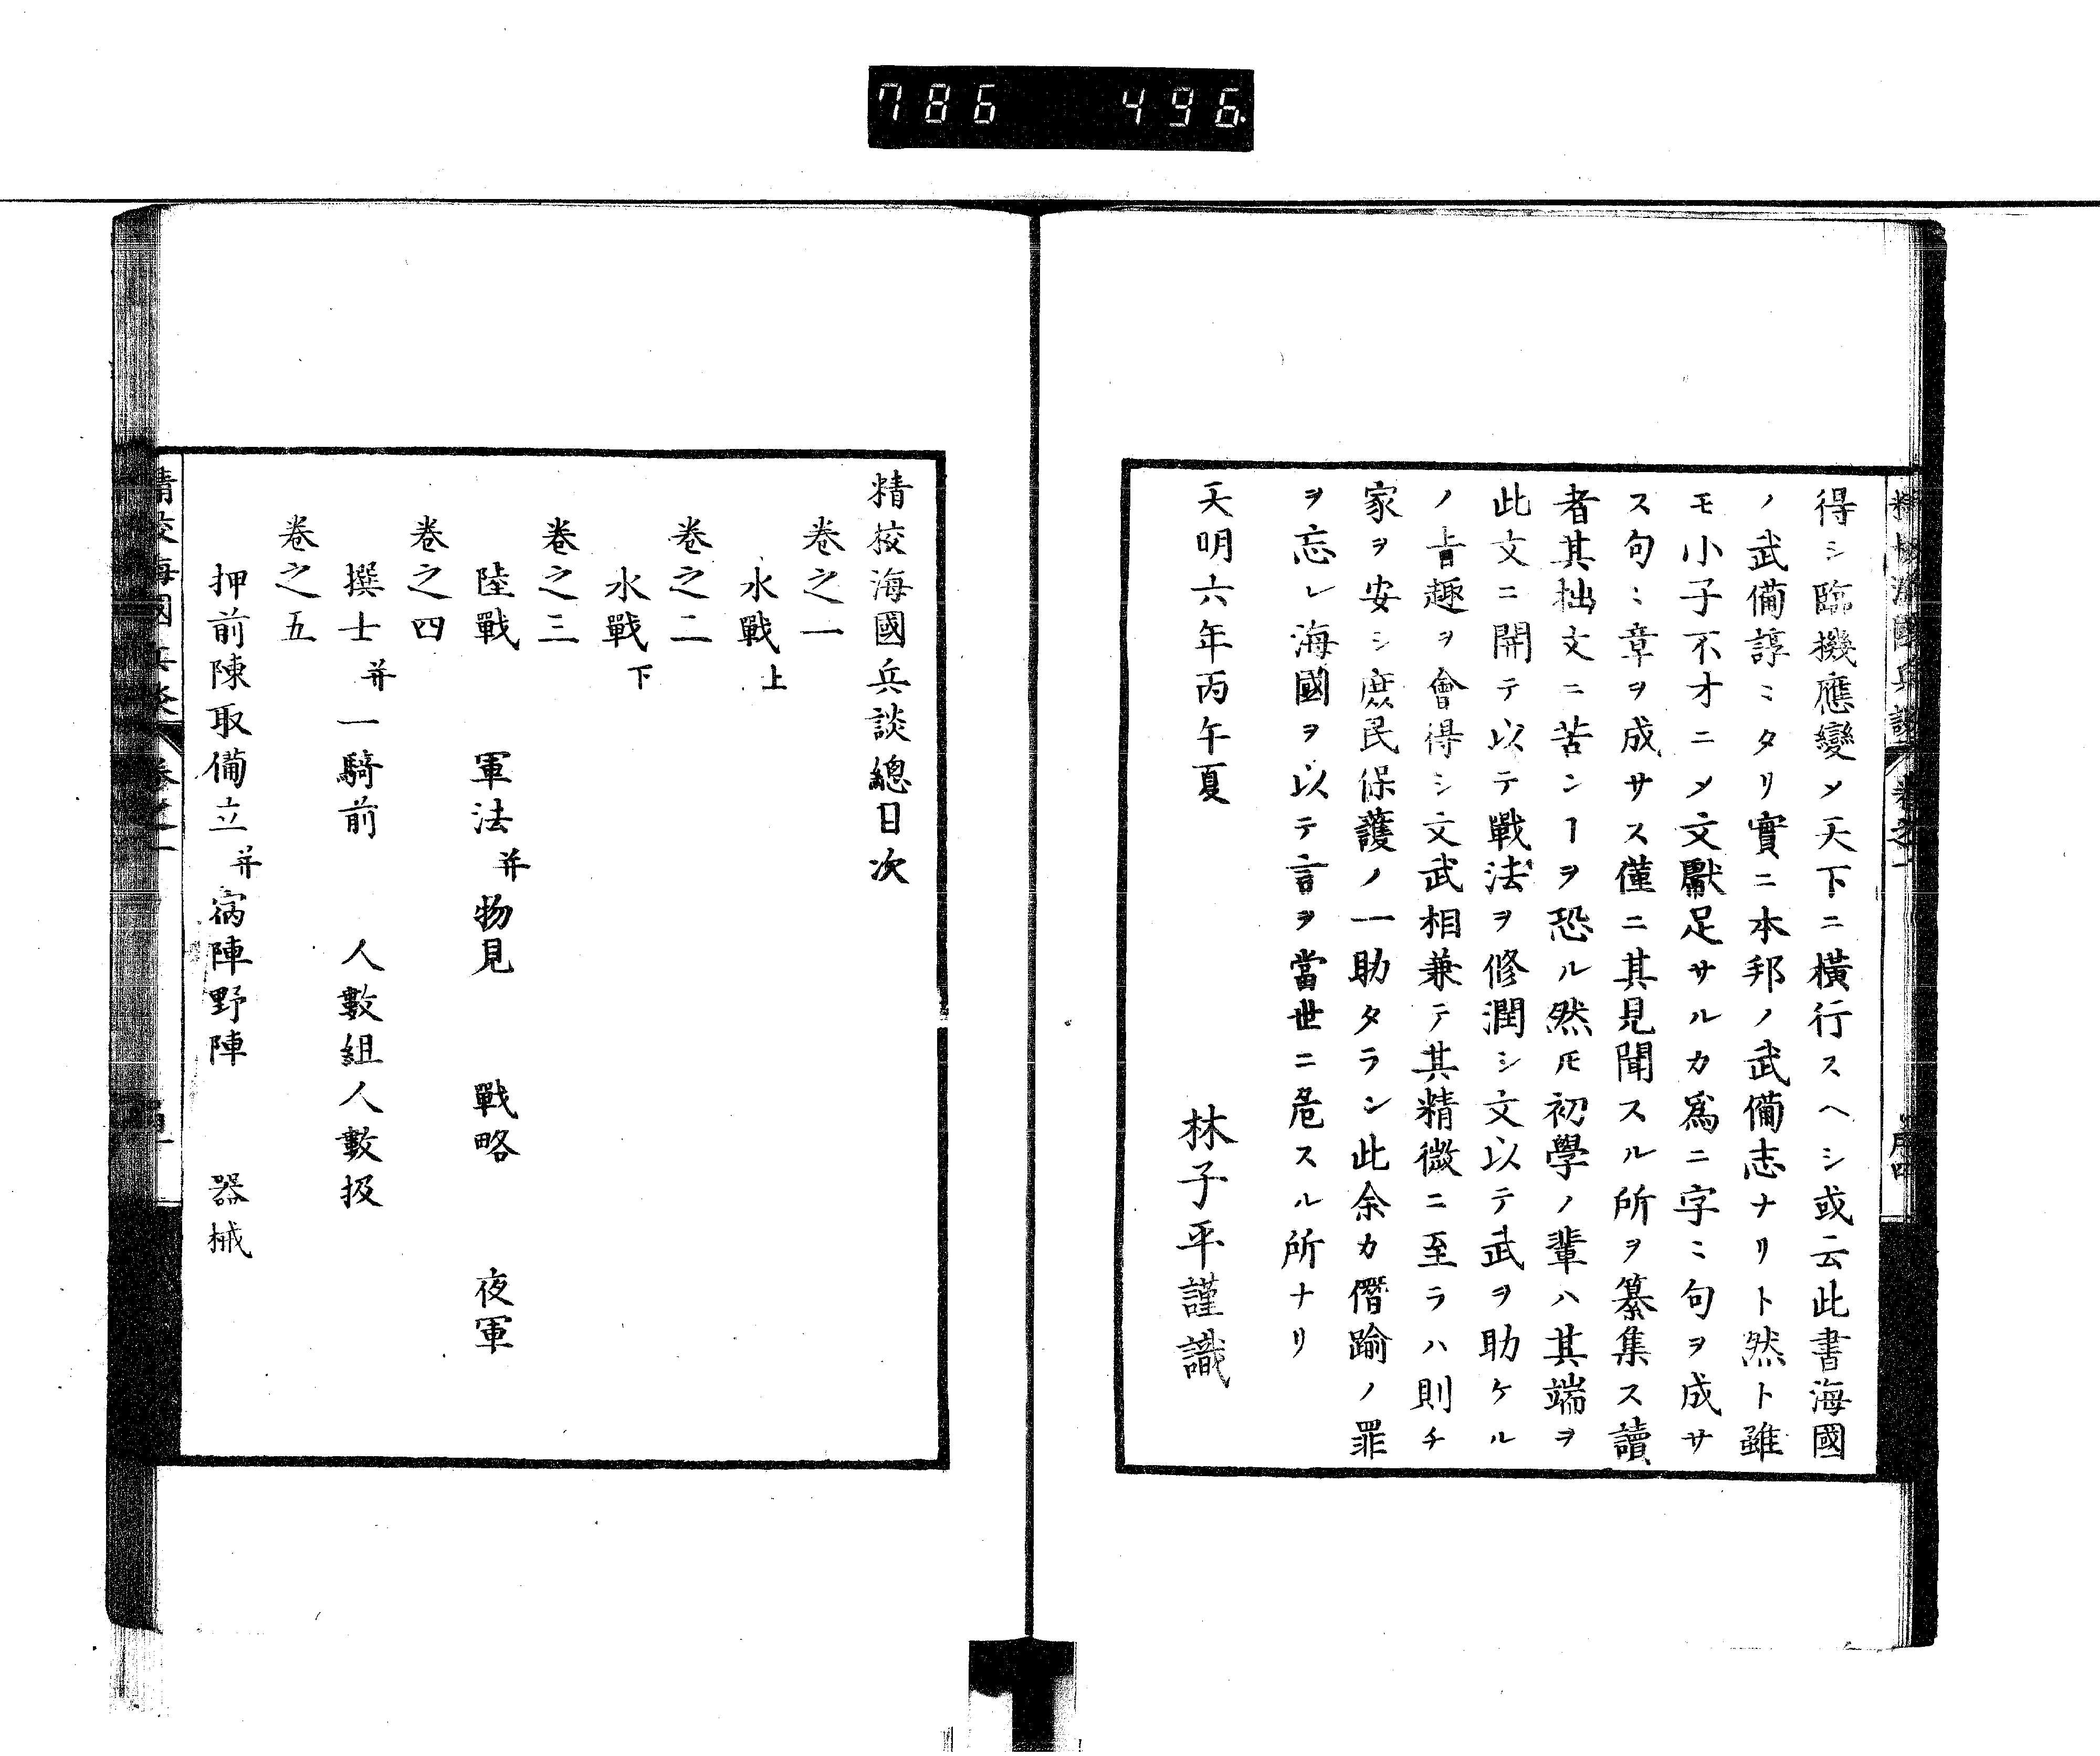 786 496
得シ臨機應變〆天下ニ橫行スヘシ或云此書海國
ノ武備諄ミタリ實ニ本邦ノ武備志ナリト然ト雖
モ小子不才ニ〆文獻足サルカ爲ニ字ミ句ヲ成サ
ス句ミ章ヲ成サス僅ニ其見聞スル所ヲ纂集ス讀
者其拙文ニ苦ンヿヲ恐ル然𪜈初學ノ輩ハ其端ヲ
此文ニ開テ以テ戰法ヲ修潤シ文以テ武ヲ助ケル
ノ旨趣ヲ會得シ文武相兼テ其精微ニ至ラハ則チ
家ヲ安シ庶民保護ノ一助タラン此余カ僭踰ノ罪
ヲ忘レ海國ヲ以テ言ヲ當世ニ危スル所ナリ
天明六年丙午夏
林子平謹識
精挍海國兵談總目次
卷之一
水戰上
卷之二
水戰下
卷之三
陸戰 軍法并物見 戰略 夜軍
卷之四
撰士并一騎前 人數組人數扱
卷之五
押前陳取備立并宿陣野陣 器械